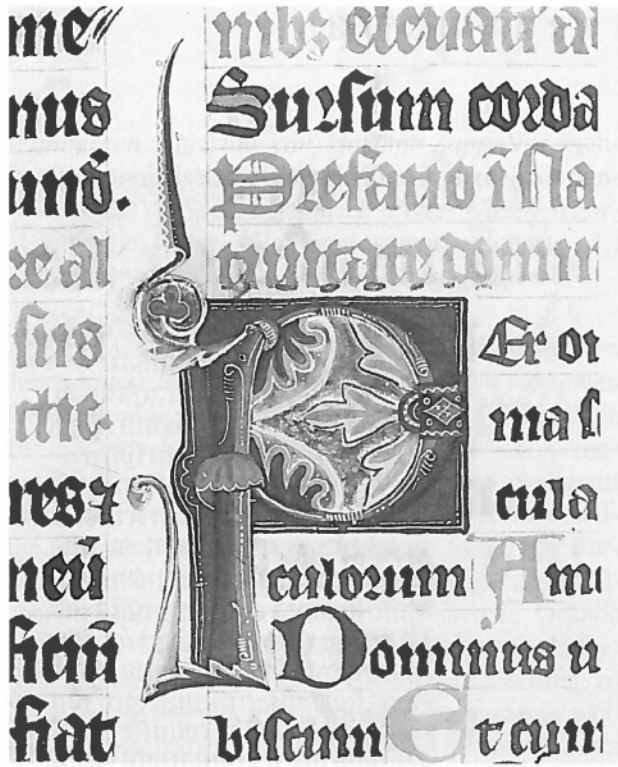 me
nus
und.
re al
sus
ctic.
res ⁊
neū
ficiū
fiat
nibꝫ eleuati
Sursum corda
Prefatio ī
tiuitate domin
P Er o
nia
cula
culorum Am
Dominus u
biscum Et cum